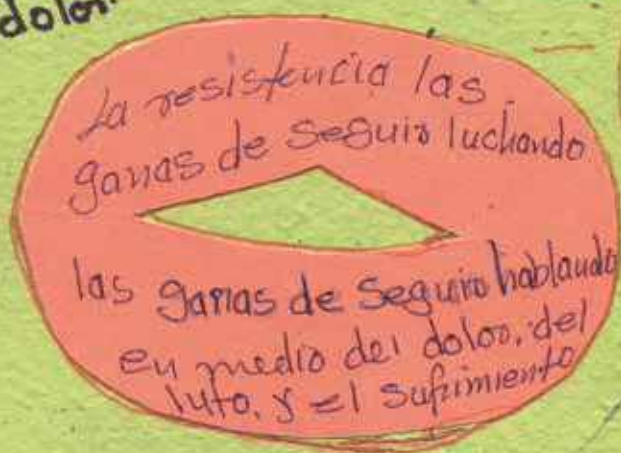 dolor.
La resistencia las
ganas de seguir luchando
las ganas de seguir hablando
en medio del dolor, del
luto, y el sufrimiento